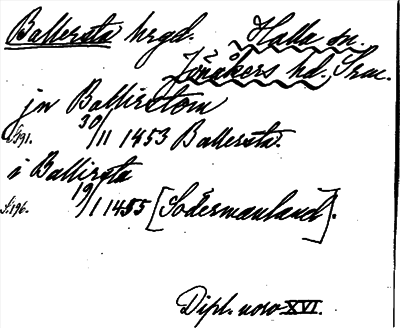 Ballersta hrgd. Halla sn.
Jönåkers hd. Srm.
jn Ballirstom
S.191. 30/11 1453 Ballersta.
i Ballirsta
S.196. 19/1 1455 [Södermanland].
Dipl. norv XVI.